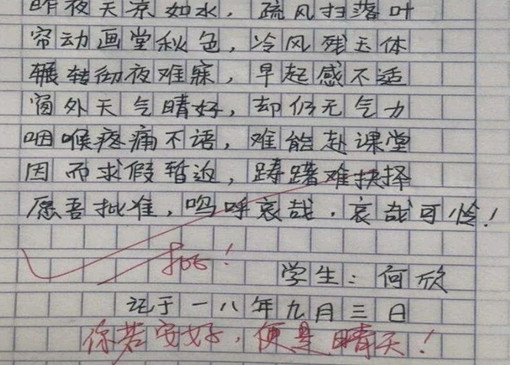 昨夜天凉如水，疏风扫落叶
帘动画堂秋色，冷风残玉体
辗转彻夜难寐，早起感不适
窗外天气晴好，却仍无气力
咽喉疼痛不语，难能赴课堂
因而求假暂返，踌躇难抉择
愿吾批准，呜呼哀哉，哀哉可怜！
批！
学生：何欣
记于一八年九月三日
你若安好，便是晴天！